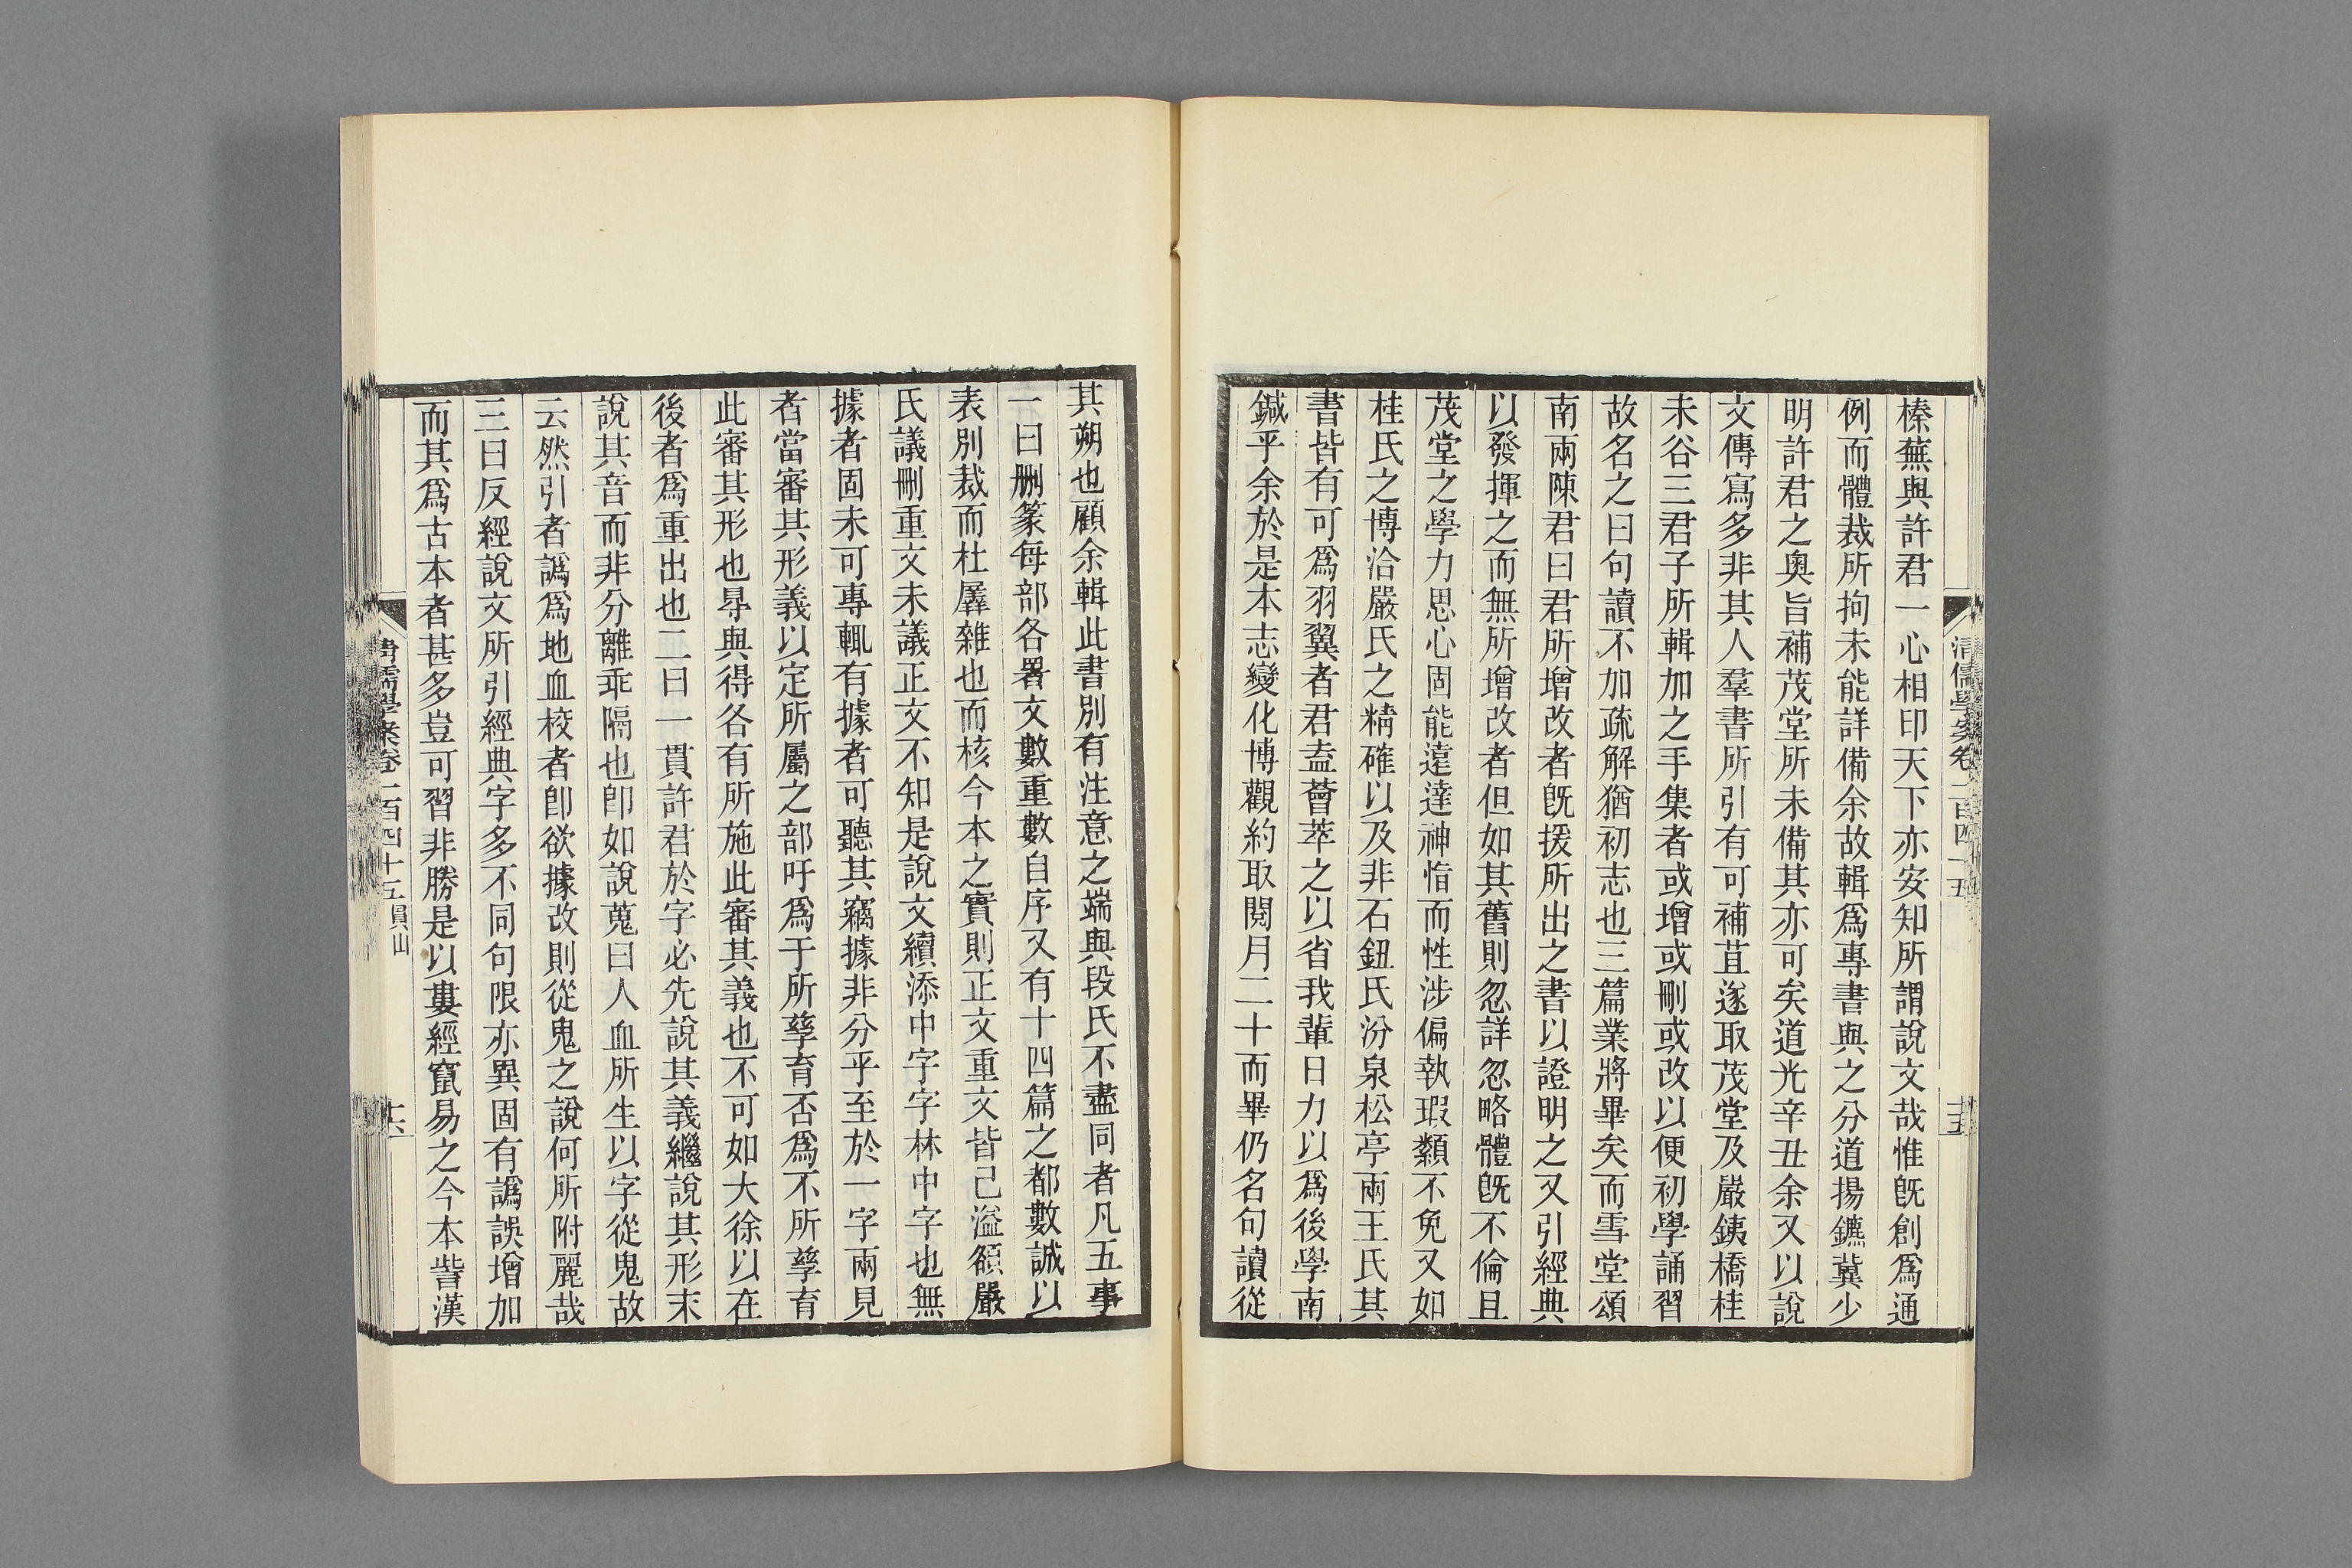 清儒學案卷一百四十五
十五
榛蕪與許君一心相印天下亦安知所謂說文哉惟旣創爲通
例而體裁所拘未能詳備余故輯爲專書與之分道揚鑣冀少
明許君之奧旨補茂堂所未備其亦可矣道光辛丑余又以說
文傳寫多非其人羣書所引有可補苴遂取茂堂及嚴鐵橋桂
未谷三君子所輯加之手集者或增或刪或改以便初學誦習
故名之曰句讀不加疏解猶初志也三篇業將畢矣而雪堂頌
南兩陳君曰君所增改者旣援所出之書以證明之又引經典
以發揮之而無所增改者但如其舊則忽詳忽略體旣不倫且
茂堂之學力思心固能遠達神恉而性涉偏執瑕纇不免又如
桂氏之博洽嚴氏之精確以及非石鈕氏汾泉松亭兩王氏其
書皆有可爲羽翼者君盍薈萃之以省我輩日力以爲後學南
鍼乎余於是本志變化博觀約取閱月二十而畢仍名句讀從
其朔也顧余輯此書別有注意之端與段氏不盡同者凡五事
一曰刪篆每部各署文數重數自序又有十四篇之都數誠以
表別裁而杜羼雜也而核今本之實則正文重文皆已溢額嚴
氏議刪重文未議正文不知是說文續添中字字林中字也無
據者固未可專輒有據者可聽其竊據非分乎至於一字兩見
者當審其形義以定所屬之部吁爲于所孳育否爲不所孳育
此審其形也㝵與得各有所施此審其義也不可如大徐以在
後者爲重出也二曰一貫許君於字必先說其義繼說其形末
說其音而非分離乖隔也卽如說蒐曰人血所生以字從鬼故
云然引者譌爲地血校者卽欲據改則從鬼之說何所附麗哉
三曰反經說文所引經典字多不同句限亦異固有譌誤增加
而其爲古本者甚多豈可習非勝是以婁經竄易之今本訾漢
清儒學案卷一百四十五 貫山
十六